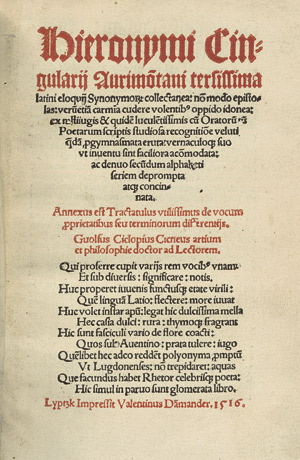 Hieronymi Cin-
gularij Aurimõtani tersissima
latini eloquij Synonymoꝝ collectanea: nõ modo episto-
las: verũetiã carmĩa cudere volentibꝰ oppido idonea:
ex p̃stãtiugis & quidẽ luculẽtissimis cũ Oratorũ tũ
Poetarum scriptis studiosa recognitiõe veluti
q̃dã ꝓgymnasmata eruta: vernaculoqꝫ suo
vt inuentu sint faciliora acõmodata:
ac denuo secũdum alphabeti
seriem deprompta
atqꝫ concin-
nata.
Annexus est Tractatulus vtilissimus de vocum
ꝓprietatibus seu terminorum differẽtijs.
Guolfius Ciclopius Cicneus artium
et philosophie doctor ad Lectorem.
Qui proferre cupit varijs rem vocibꝰ vnam
Et sub diuersis: significare: notis,
Huc properet iuuenis functusqꝫ etate virili:
Quẽ linguã Latio: flectere: more iuuat
Huc volet instar apũ: legat hic dulcissima mella
Hec casia dulci: rura: thymoqꝫ fragrant
Hic sunt fasciculi vario de flore coacti:
Quos sub Auentino: prata tulere: iugo
Quẽlibet hec adeo reddẽt polyonyma ꝓmptũ
Vt Lugdonenses: nõ trepidaret: aquas
Que facundus habet Rhetor celebrisqꝫ poeta:
Hic simul in paruo sunt glomerata libro.
Lyptzk Impressit Valentinus Dãmander. 1516.